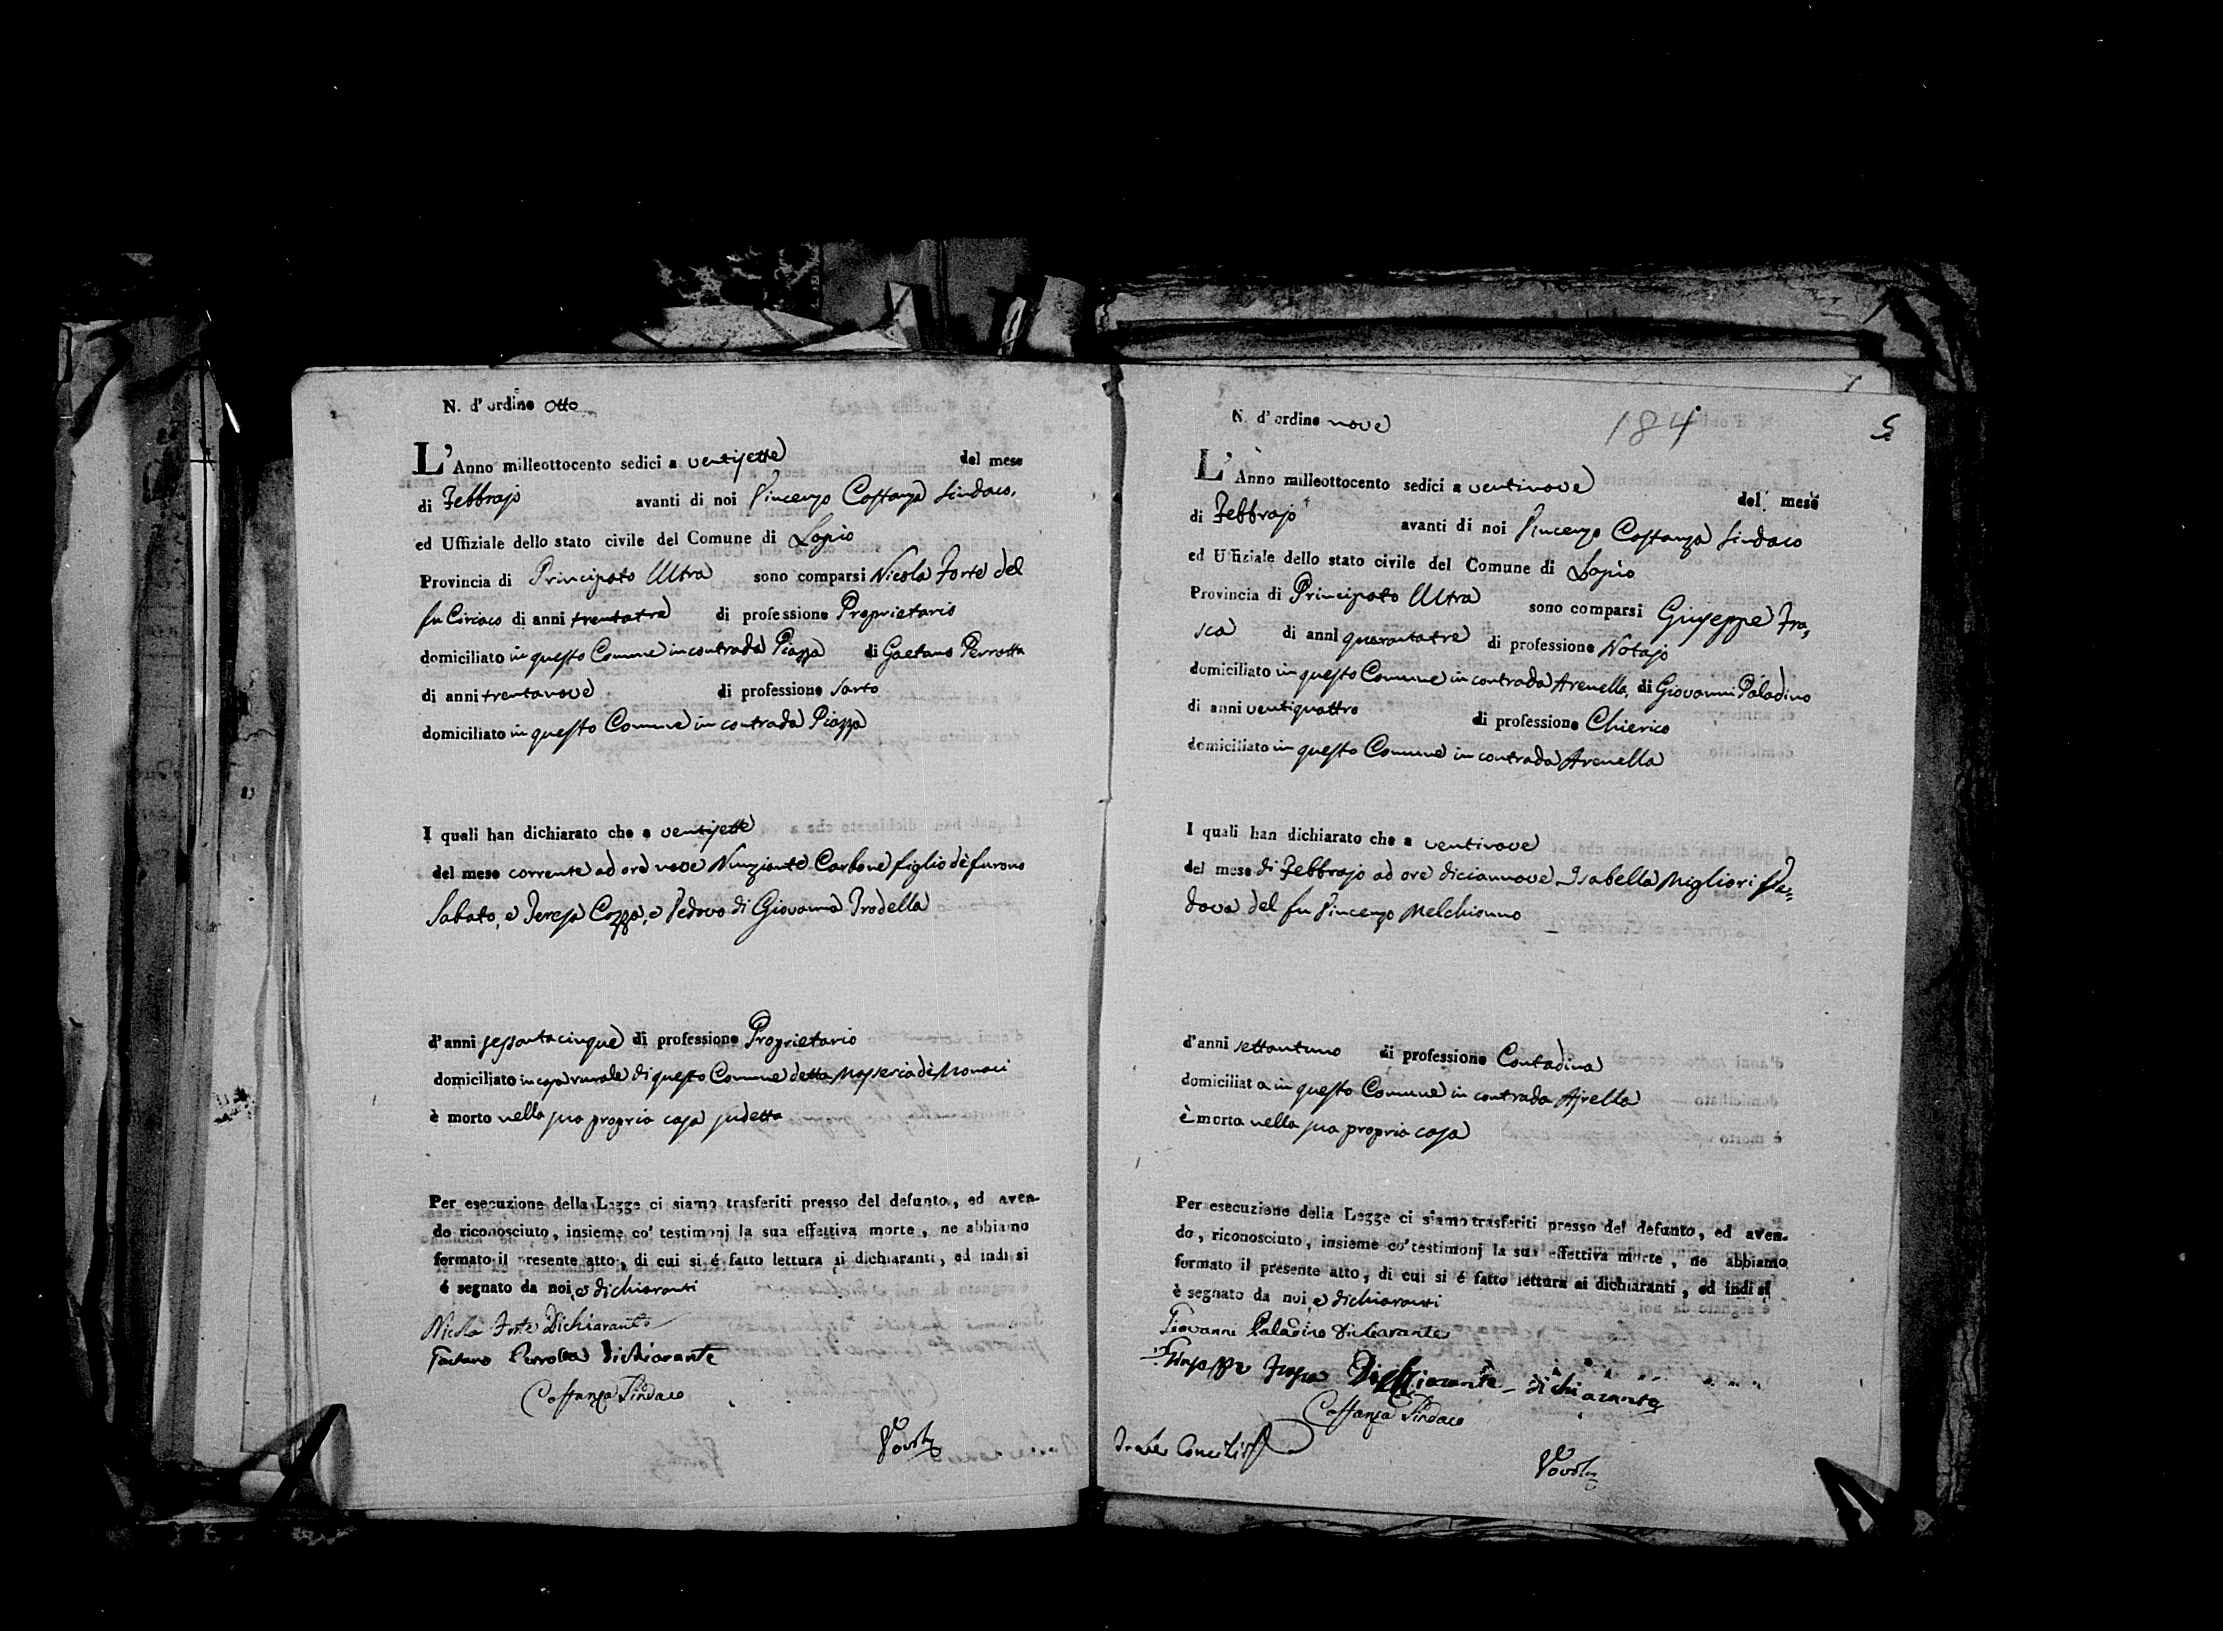 N. d'ordine otto
L'Anno milleottocento sedici a ventisette del mese
di Febbrajo avanti di noi Vincenzo Costanza Sindaco,
ed Uffiziale dello stato civile del Comune di Lapio
Provincia di Principato Ultra sono comparsi Nicola Forte del
fu Ciriaco di anni trentatre di professione Proprietario
domiciliato in questo Comune in contrada Piazza di Gaetano Perrotta
di anni trentanove di professione Sarto
domiciliato in questo Comune in contrada Piazza
I quali han dichiarato che a ventisette
del mese corrente ad ore nove Nunziante Carbone figlio dè furono
Sabato, e Teresa Cozza, e Vedovo di Giovanna Trodella
d'anni sessantacinque di professione Proprietario
domiciliato in casa rurale di questo Comune detta Masseria dè Monaci
è morto nella sua propria casa sudetta
Per esecuzione della Legge ci siamo trasferiti presso del defunto, ed aven-
do riconosciuto, insieme co' testimonj la sua effettiva morte, ne abbiamo
formato il presente atto, di cui si é fatto lettura ai dichiaranti, ed indi si
é segnato da noi, e dichiaranti
Nicola Forte Dichiarante
Gaetano Perrotta Dichiarante
Costanza Sindaco
N. d'ordine nove
184
5
L'Anno milleottocento sedici a ventinove del mese
di Febbrajo avanti di noi Vincenzo Costanza Sindaco
ed Uffiziale dello stato civile del Comune di Lapio
Provincia di Principato Ultra sono comparsi Giuseppe Fra,
sca di anni quarantatre di professione Notajo
domiciliato in questo Comune in contrada Arenella, di Giovanni Paladino
di anni ventiquattro di professione Chierico
domiciliato in questo Comune in contrada Arenella
I quali han dichiarato che a ventinove
del mese di Febbrajo ad ore diciannove Isabella Migliori Ve=
dova del fu Vincenzo Melchionno
d'anni settantuno di professione Contadina
domiciliata in questo Comune in contrada Ajrella
è morta nella sua propria casa
Per esecuzione della Legge ci siamo trasferiti presso del defunto, ed aven-
do, riconosciuto, insieme co' testimonj la sua effettiva morte, ne abbiamo
formato il presente atto, di cui si é fatto lettura ai dichiaranti, ed indi si
è segnato da noi, e dichiaranti
Giovanni Paladino Dichiarante
Giuseppe Frasca Dichiarante dichiarante
Costanza Sindaco